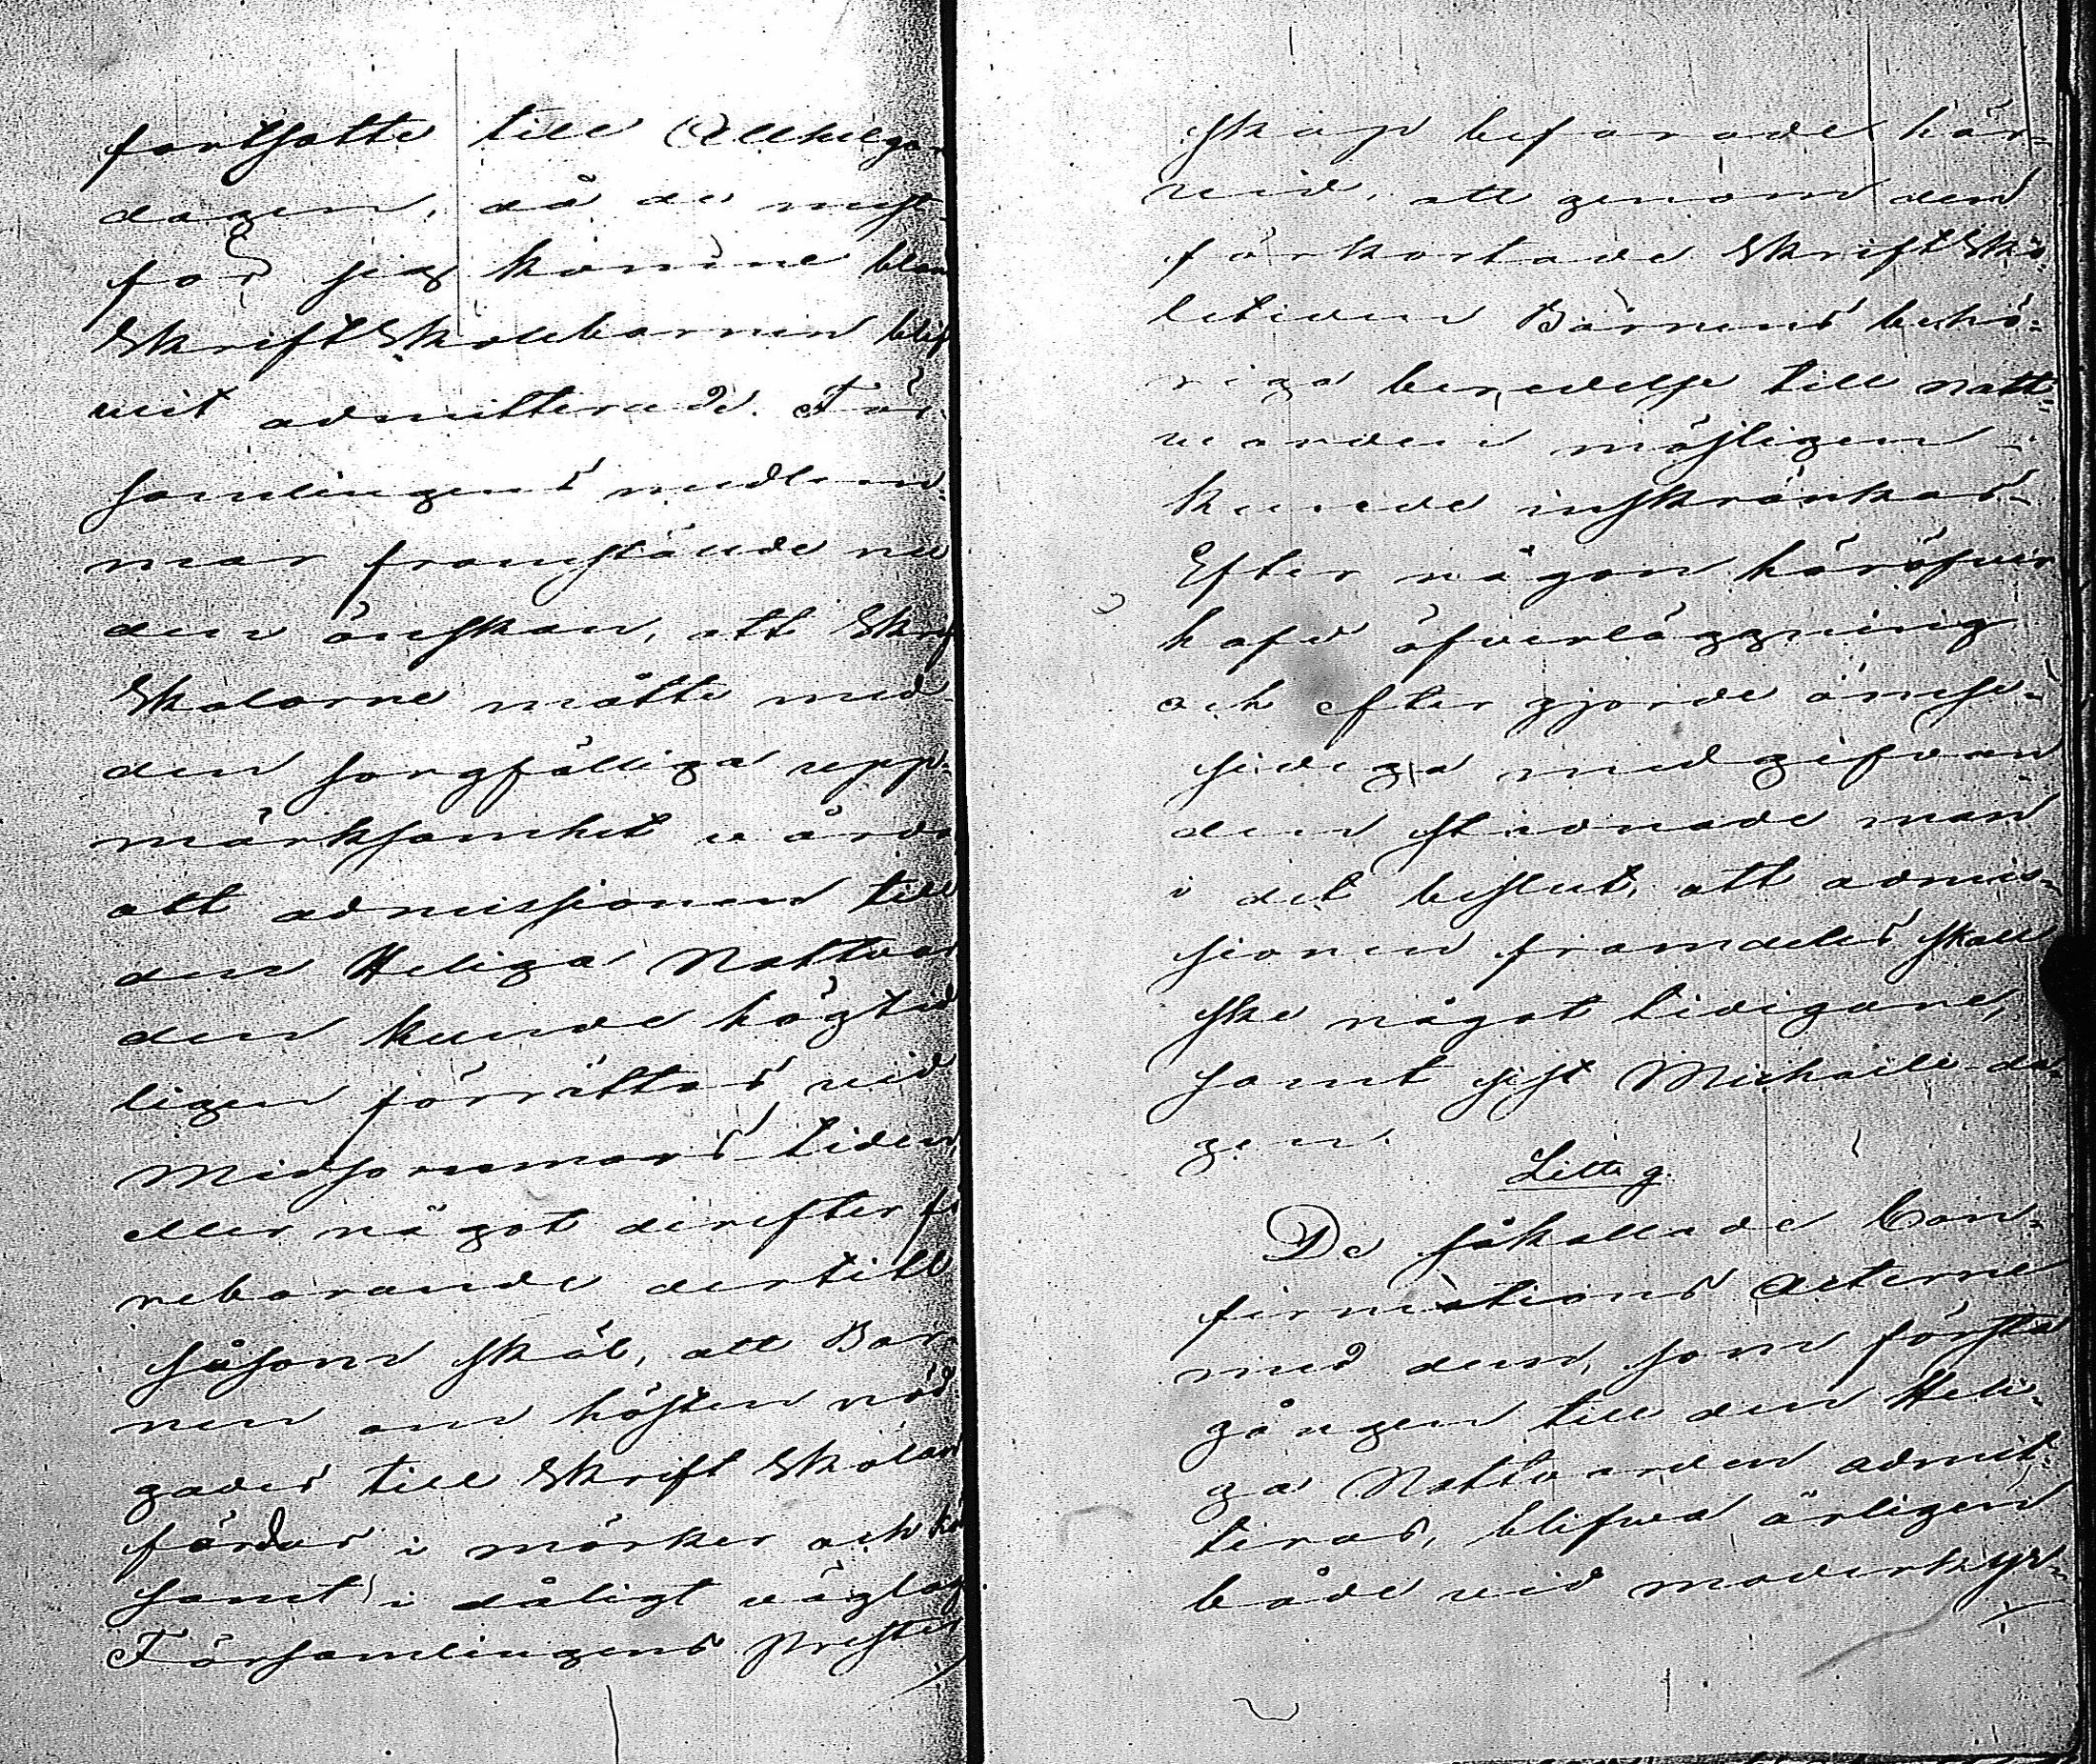 fortsatte till Allhelgon
dagen, då de most
for sig komne bland
Skriftskolebarnen blif
vit admitterade. För
samlingens medlem-
mar framstälde nu
den önskan, att Skrif
Skolorne måtte med
den sorgfälliga upp-
märksamhet vårda
att admissionen till
den Heliga Nattvar
den kunde högtid
ligen förrättas vid
Midsommars tiden,
eller något derefter fö
rebarande dertill
såsom skäl, att Bar
nen om hösten nöd
gades till Skrift Skolan
färdas i mörker och
samt i dåligt väglag
Församlingens Prester
skap befarade här-
vid, att genom den
förkortade Skriftsko-
letiden Barnens behö-
riga beredelse till natt-
varden möjligen
kunde inskränkas
Efter någon häröfver
hafd öfverläggning
och efter gjorde ömse-
sidiga medgifvan
den stadnade man
i det beslut, att admis-
sionen framdeles skall
ske något tidigare,
samt sist Michaeli da-
gen.
Litt. g.
De såkallade Con-
firmations Acterne
med dem, som första
gången till den Heli-
ga Nattvarden admit-
teras, blifva årligen
både vid moderkyr-